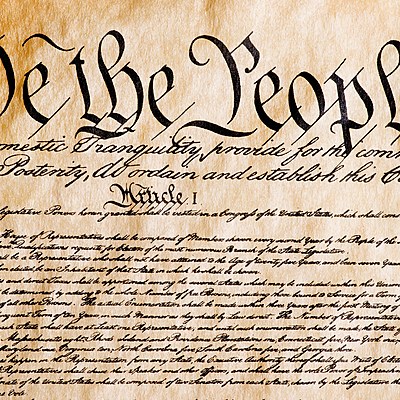 We the Peopl
omestic Tranquility, provide for the com
Posterity, do ordain and establish this C
Article I
legislative Powers herein granted shall be vested in a Congress of the United States, which shall cons
House of Representatives shall be composed of Members chosen every second Year by the People of the
Qualifications requisite for Electors of the most numerous Branch of the State Legislature.
shall be a Representative who shall not have attained to the Age of twenty five Years, and been seven Years
elected, be an Inhabitant of that State in which he shall be chosen.
Taxes shall be apportioned among the several States which may be included within this Union
be determined by adding to the whole Number of free Persons, including those bound to Service for a Term
of all other Persons. The actual Enumeration shall be made within three Years after the first Meeting
subsequent Term of ten Years, in such Manner as they shall by Law direct. The Number of Representatives
each State shall have at Least one Representative; and until such enumeration shall be made, the State of
Massachusetts eight, Rhode Island and Providence Plantations one, Connecticut five, New York
Maryland six, Virginia ten, North Carolina five, South Carolina five, and Georgia
happen in the Representation from any State, the Executive Authority thereof shall
Representatives shall chuse their Speaker and other Officers; and shall have the sole Power of Impeachment
Senate of the United States shall be composed of two Senators from each State, chosen by the Legislature